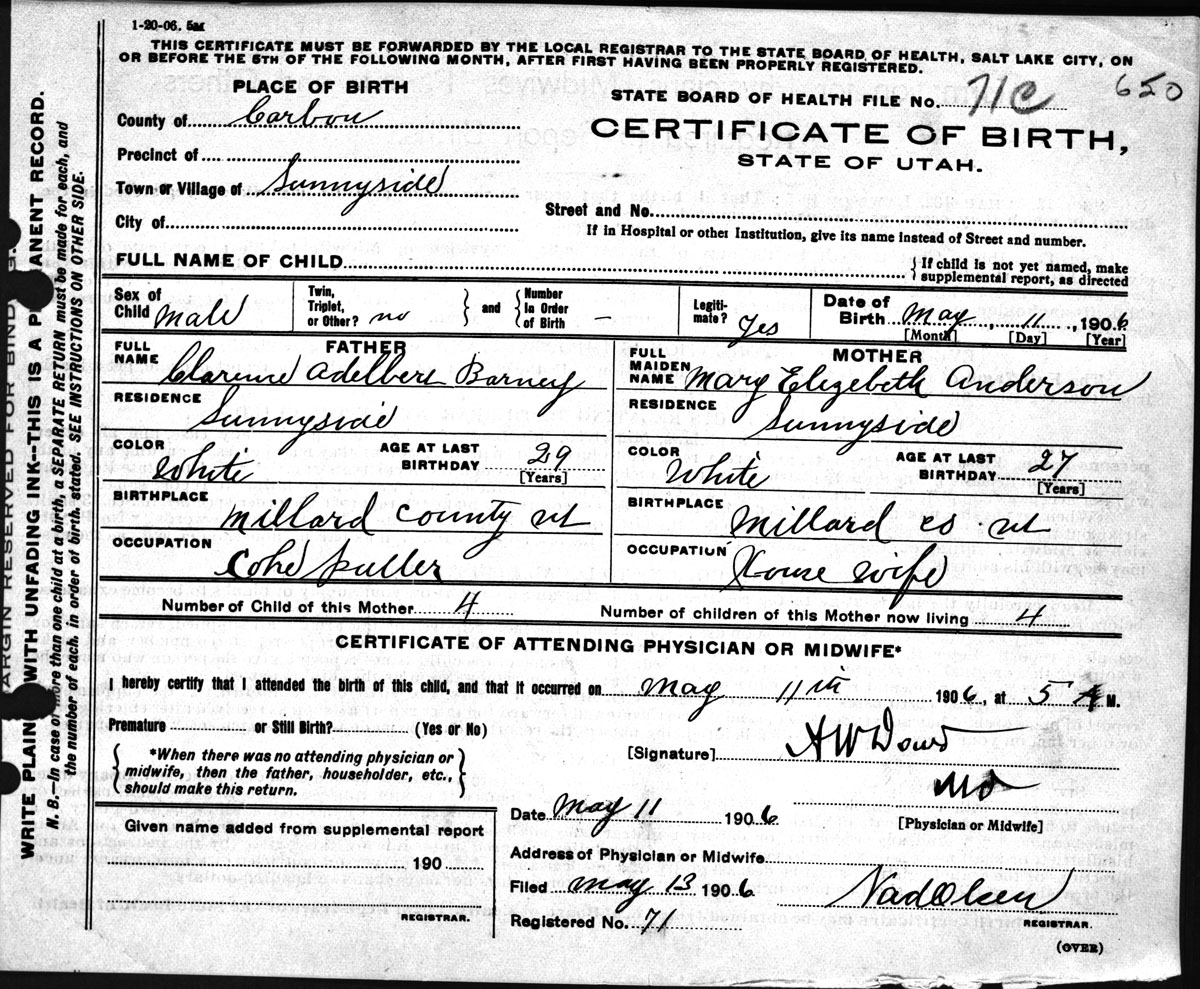 1-20-06. 5M
THIS CERTIFICATE MUST BE FORWARDED BY THE LOCAL REGISTRAR TO THE STATE BOARD OF HEALTH, SALT LAKE CITY, ON
OR BEFORE THE 5TH OF THE FOLLOWING MONTH, AFTER FIRST HAVING BEEN PROPERLY REGISTERED.
PLACE OF BIRTH
STATE BOARD OF HEALTH FILE No. 71C 650
County of Carbon
CERTIFICATE OF BIRTH,
STATE OF UTAH.
Precinct of
Town or Village of Sunnyside
Street and No.
City of
If in Hospital or other Institution, give its name instead of Street and number.
FULL NAME OF CHILD
{ If child is not yet named, make
supplemental report, as directed
Sex of Child Male
Twin, Triplet, or Other? no } and { Number In Order of Birth –
Legiti-mate? Yes
Date of Birth May, 11, 1906
[Month] [Day] [Year]
FATHER
FULL NAME Clarence Adelbert Barney
RESIDENCE Sunnyside
COLOR White AGE AT LAST BIRTHDAY 29 [Years]
BIRTHPLACE Millard County ut
OCCUPATION Coke puller
MOTHER
FULL MAIDEN NAME Mary Elizebeth Anderson
RESIDENCE Sunnyside
COLOR White AGE AT LAST BIRTHDAY 27 [Years]
BIRTHPLACE Millard co ut
OCCUPATION House wife
Number of Child of this Mother 4 Number of children of this Mother now living 4
CERTIFICATE OF ATTENDING PHYSICIAN OR MIDWIFE*
I hereby certify that I attended the birth of this child, and that it occurred on May 11th 1906, at 5 A M.
Premature or Still Birth? (Yes or No)
{ *When there was no attending physician or
midwife, then the father, householder, etc.,
should make this return. }
[Signature] A W Dowd
MD
[Physician or Midwife]
Date May 11 1906
Given name added from supplemental report
190
REGISTRAR.
Address of Physician or Midwife
Filed May 13 1906
REGISTRAR.
Registered No. 71
(OVER)
MARGIN RESERVED FOR BINDING.
WRITE PLAINLY WITH UNFADING INK--THIS IS A PERMANENT RECORD.
N. B.—In case of more than one child at a birth, a SEPARATE RETURN must be made for each, and
the number of each, in order of birth, stated. SEE INSTRUCTIONS ON OTHER SIDE.